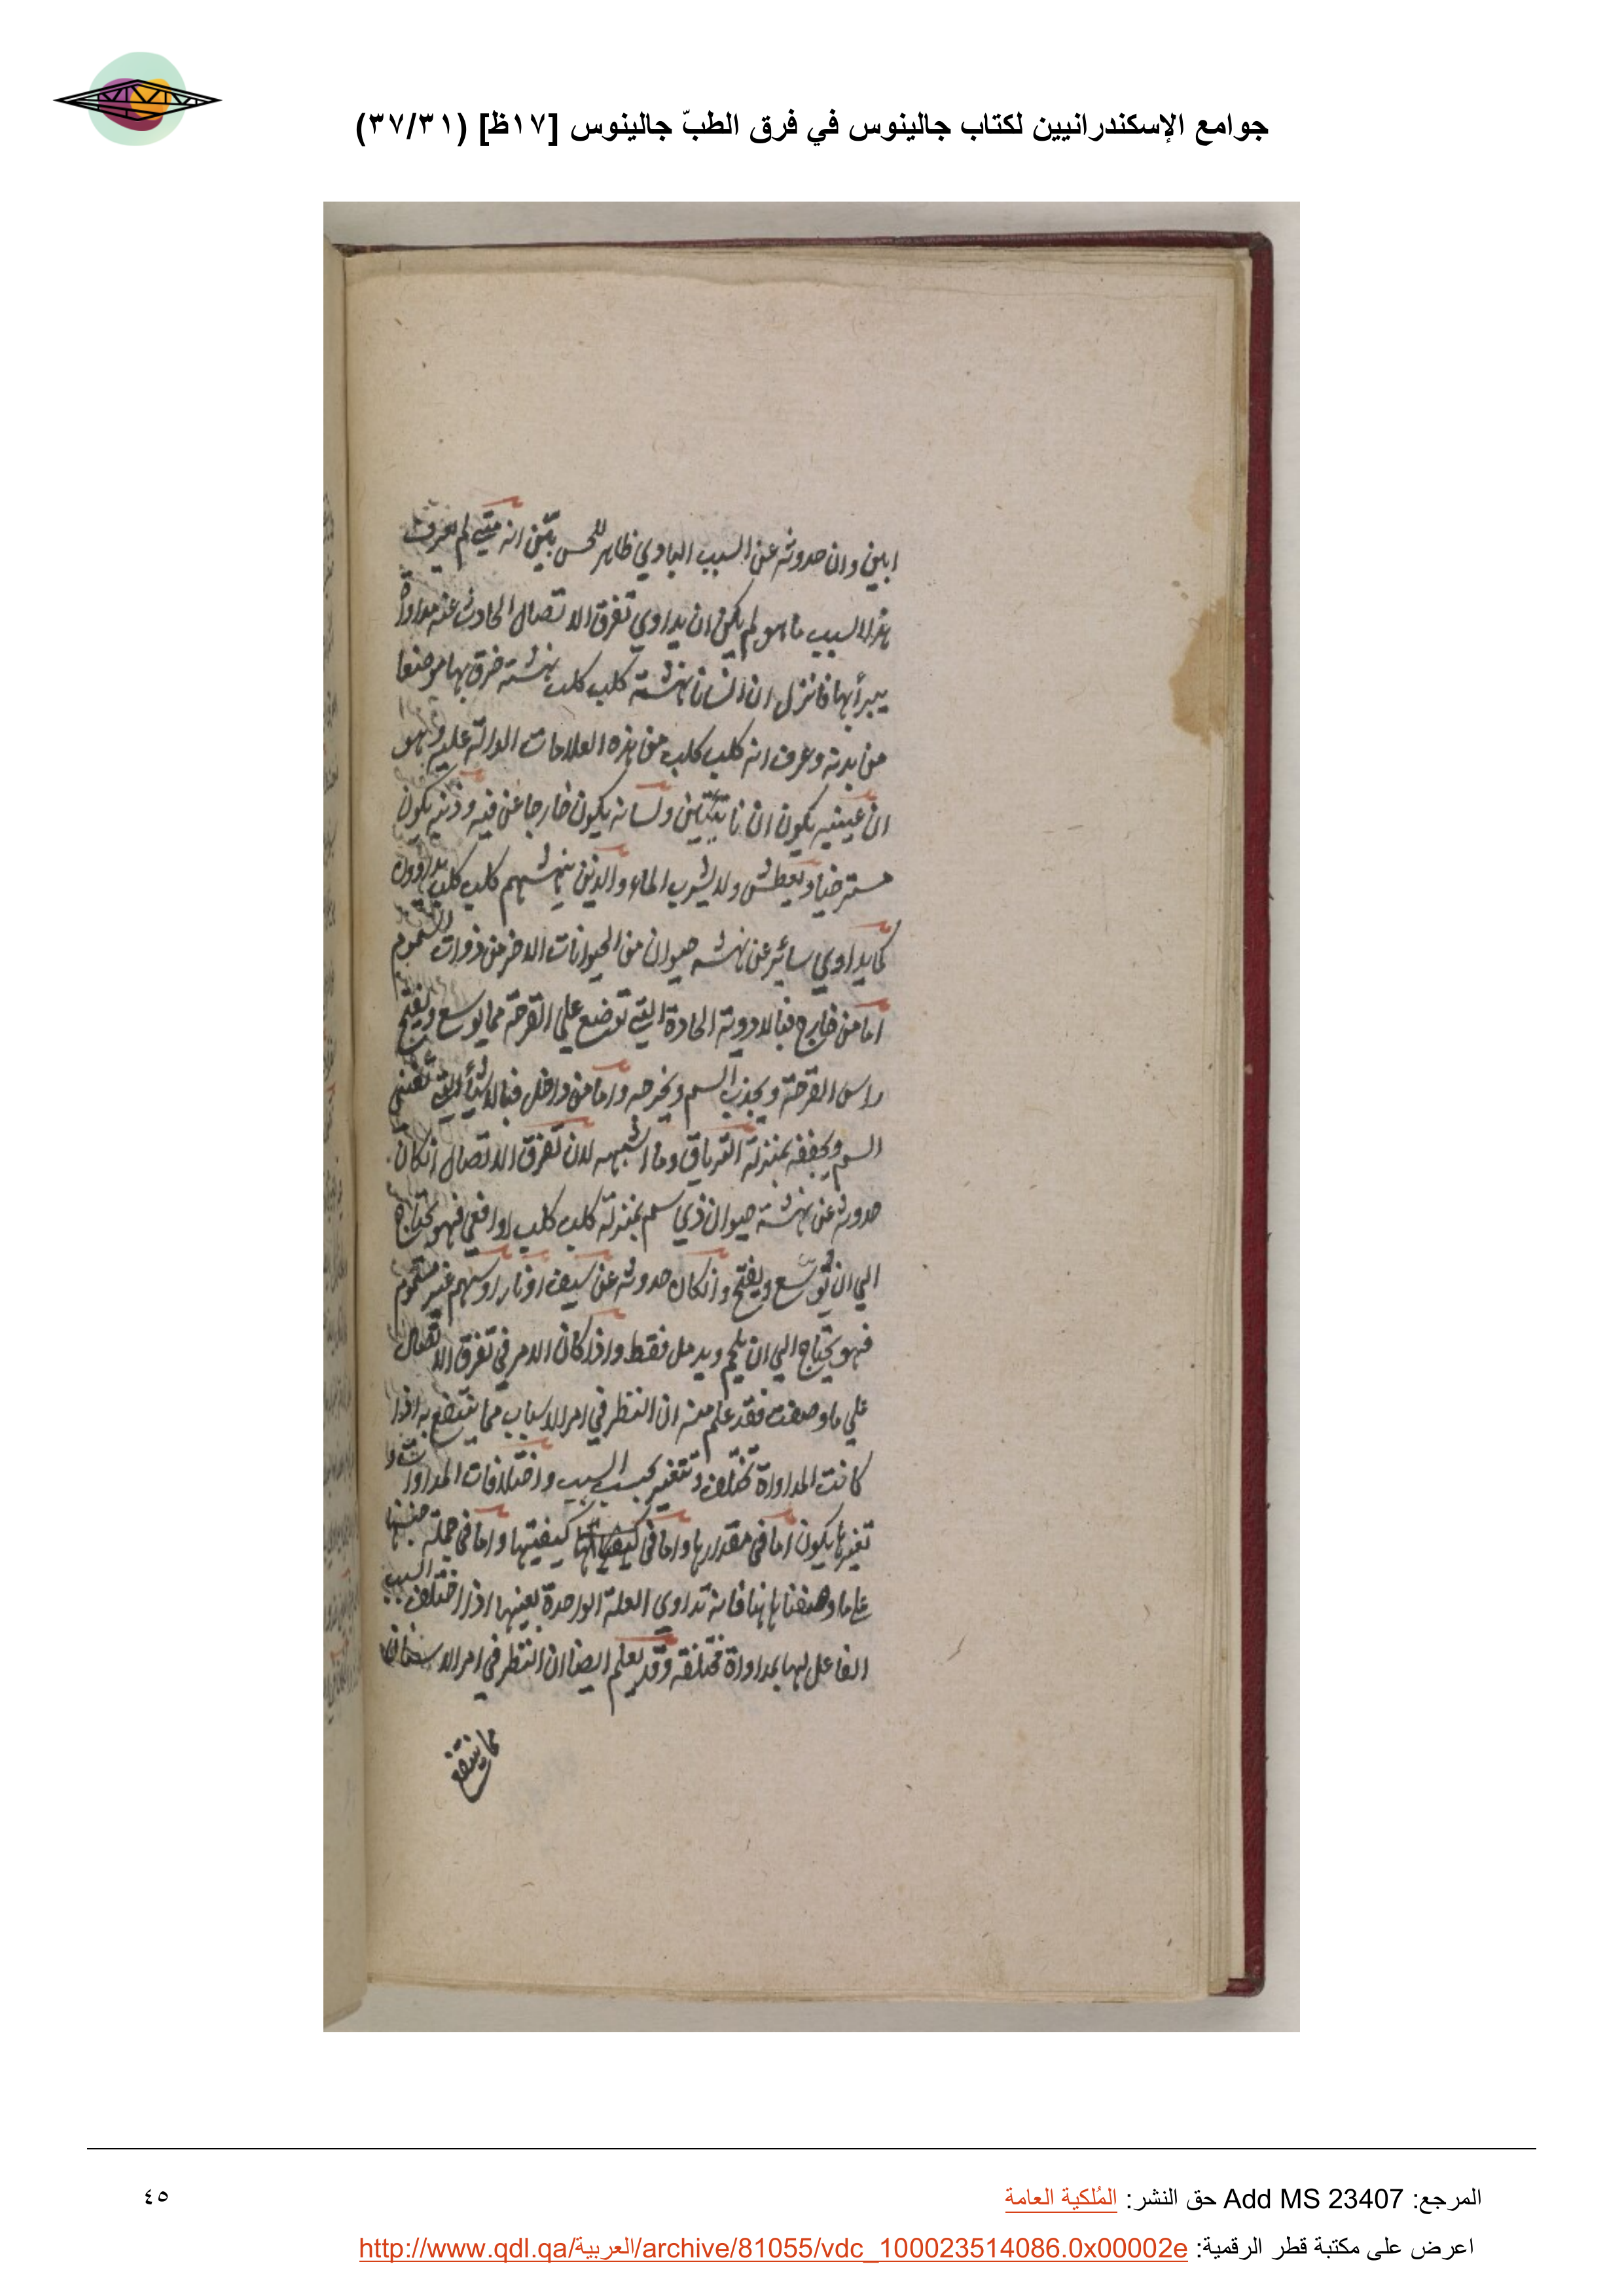 جوامع الإسكندرانيين لكتاب جالينوس في فرق الطبّ جالينوس [١٧ظ] (٣٧/٣١)
ابين وان حدوثه عن السبب البادي ظاهر للحس بيّن انه متي لم يعرف
هذا السبب ما هو لم يكن ان يداوي تفرق الاتصال الحادث عنه مداواة
يبرأ بها فانزل ان انسانا نهشته كلب كلب نهشته خرق بها موضعا
من بدنه وعرف انه كلب كلب من هذه العلامات الدالة عليه وهو
ان عينيه يكون ان ناتيتين ولسانه يكون خارجا عن فيه وذنبه يكون
مسترخيا ويعطش ولا يشرب الماء والذين ينهشهم كلب كلب يداوون
كما يداوي سائر عن نهشه حيوان من الحيوانات الاخر من ذوات السموم
اما من خارج فبالادوية الحادة التي توضع علي القرحة مما يوسع ويفتح
راس القرحة ويجذب السم ويخرجه واما من داخل فبالاشيأ التي تفني
السم ويجففه بمنزلة الترياق وما اشبهه لان تفرق الاتصال انكان
حدوثه عن نهشة حيوان ذي سم بمنزلة كلب كلب او افعي فهو يحتاج
الي ان يوسّع ويفتح وانكان حدوثه عن سيف او نار او سهم غير مسموم
فهو يحتاج الي ان يلحم ويدمل فقط واذا كان الامر في تفرق الاتصال
علي ما وصفت فقد علم منه ان النظر في امر الاسباب مما ينتفع به اذا
كانت المداواة تختلف وتتغير بحسب السبب واختلافات المداوات وا
تغيرها يكون اما في مقدارها واما في كيفيتها واما في جملة جنسها
علي ما وصفنا هاهنا فانه تداوي العلة الواحدة بعينها اذا اختلف السبب
الفاعل لها بمداواة مختلفة وقد يعلم ايضا ان النظر في امر الاسنان
مما ينتفع
المرجع: Add MS 23407 حق النشر: المُلكية العامة
٤٥
اعرض على مكتبة قطر الرقمية: http://www.qdl.qa/العربية/archive/81055/vdc_100023514086.0x00002e